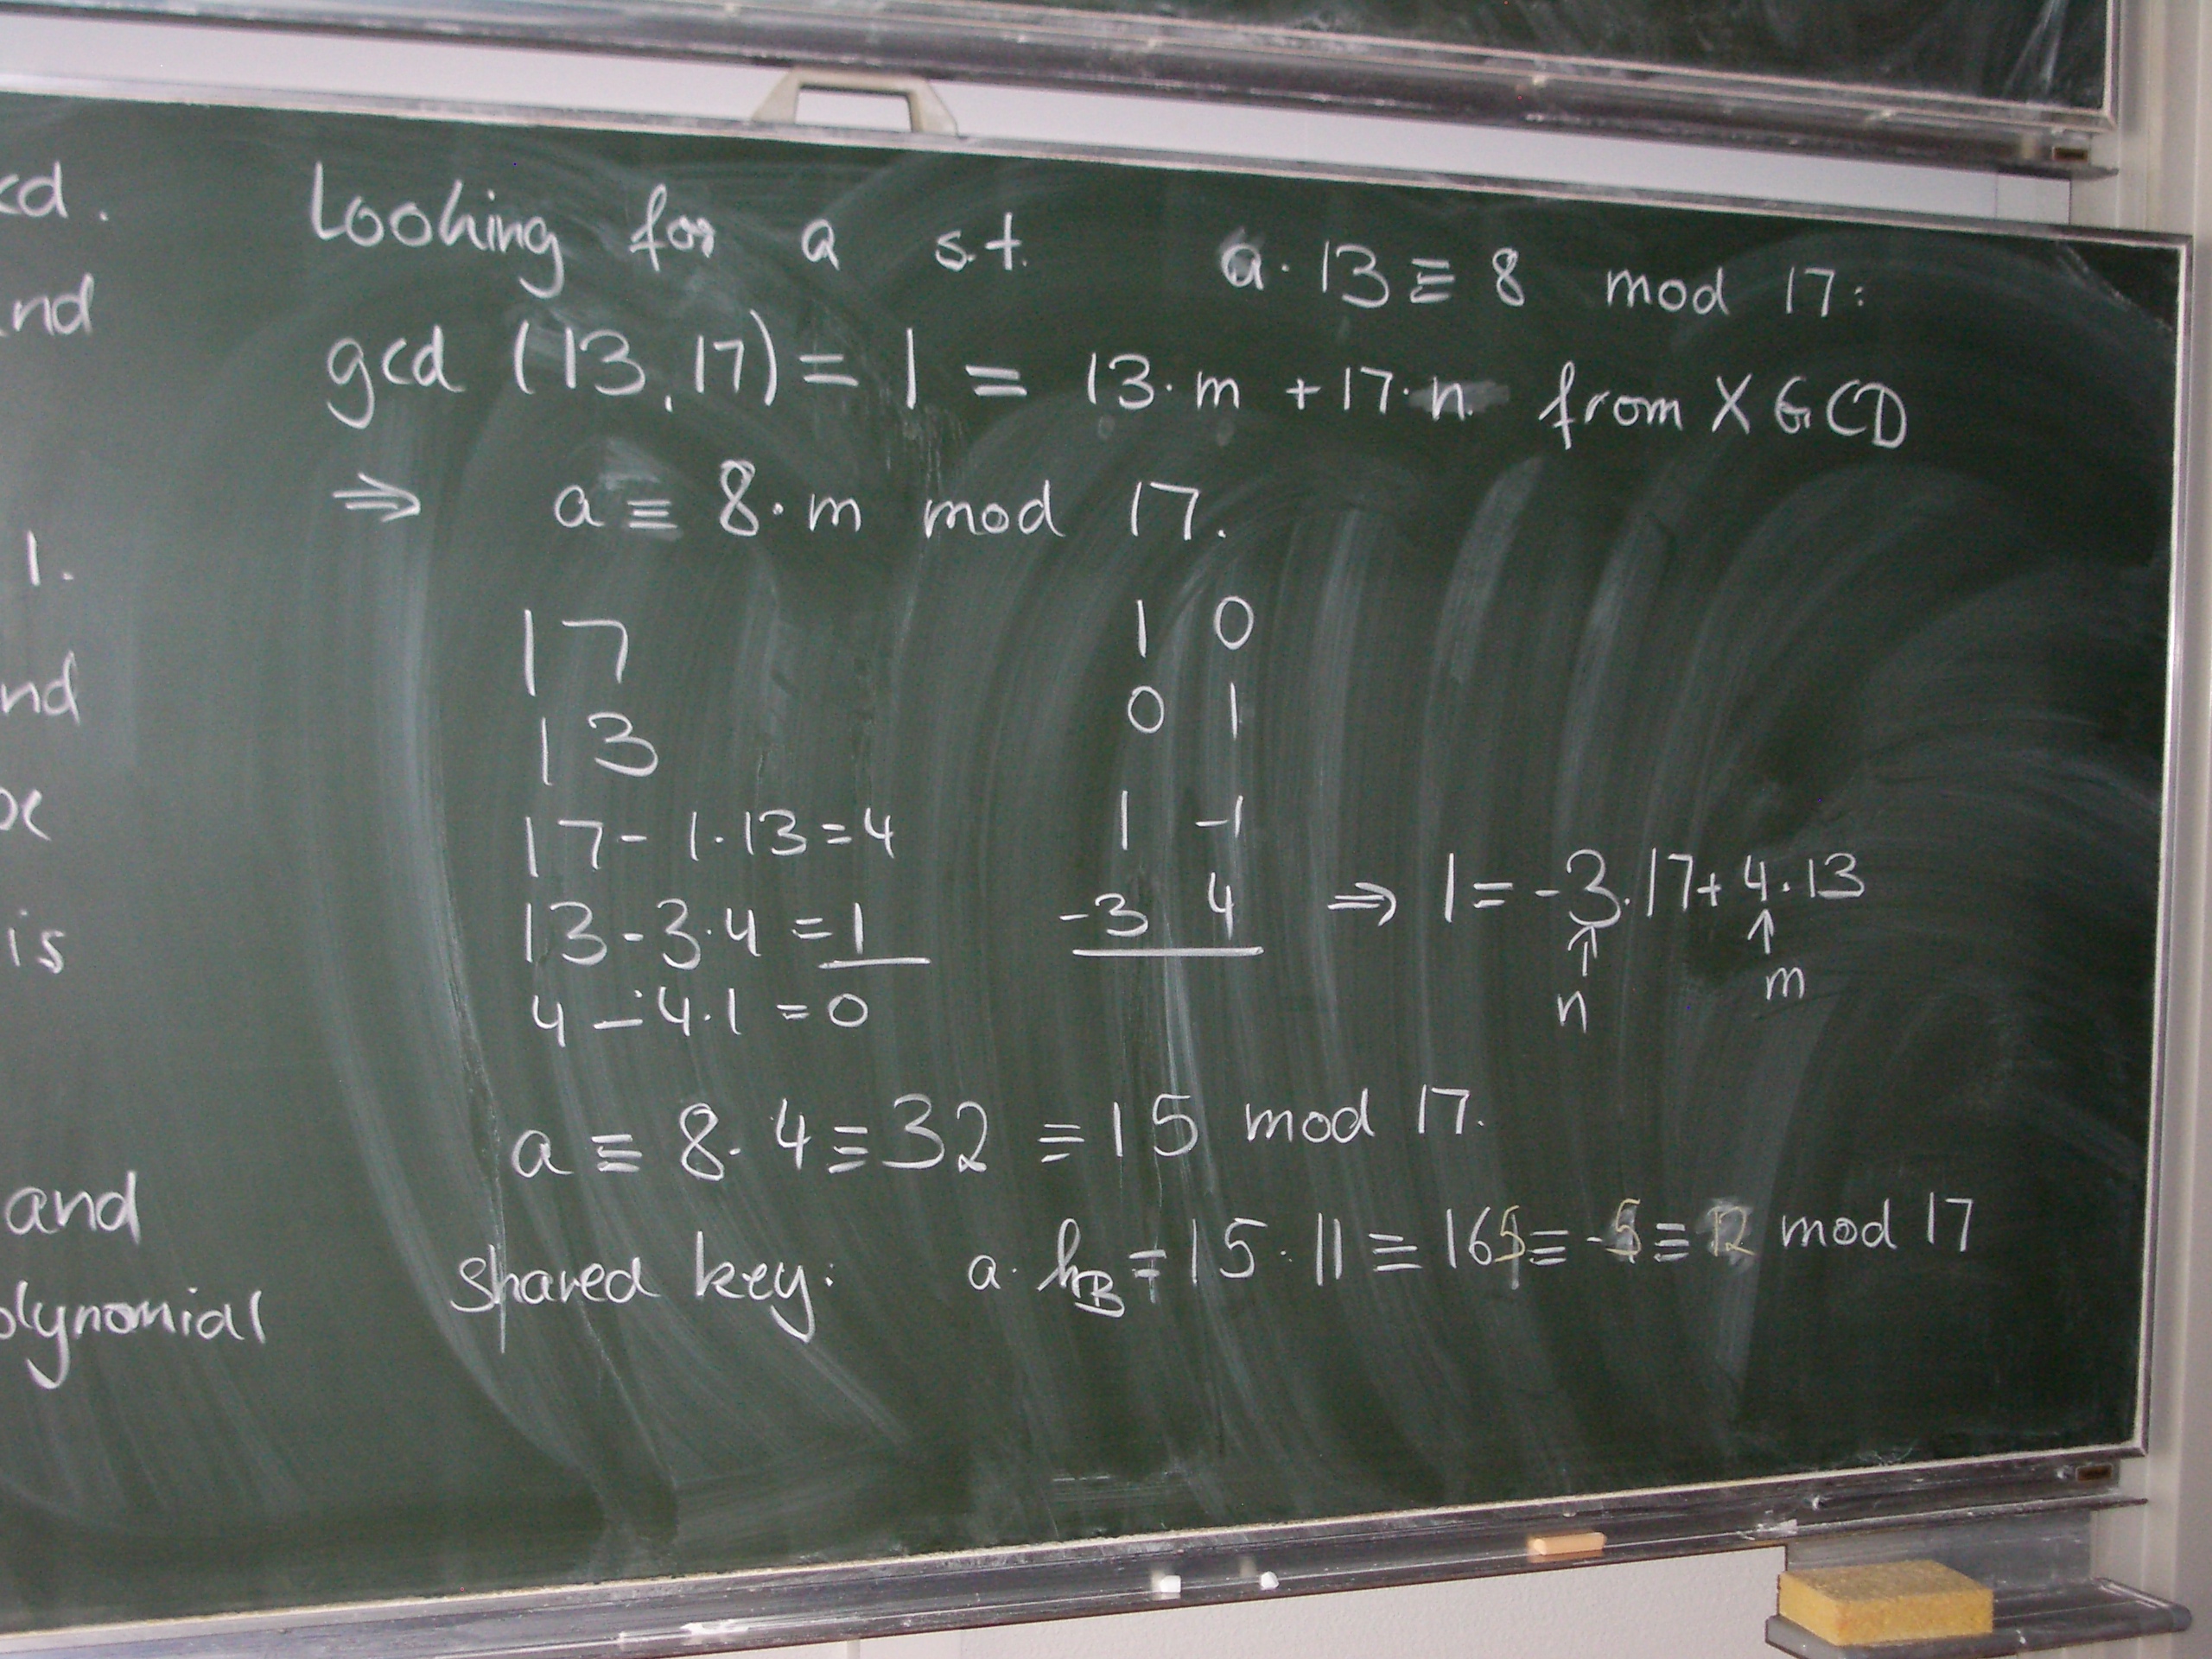 cd.
nd
1.
nd
is
and
olynomial
Looking for a s.t. a · 13 ≡ 8 mod 17:
gcd (13,17) = 1 = 13 · m + 17 · n from XGCD
⇒ a ≡ 8 · m mod 17.
17 1 0
13 0 1
17 - 1·13 = 4 1 -1
13 - 3·4 = 1 -3 4 ⇒ 1 = -3·17 + 4·13
↑ ↑
n m
4 - 4·1 = 0
a ≡ 8 · 4 ≡ 32 ≡ 15 mod 17.
shared key: a · h_B = 15 · 11 ≡ 165 ≡ -5 ≡ 12 mod 17